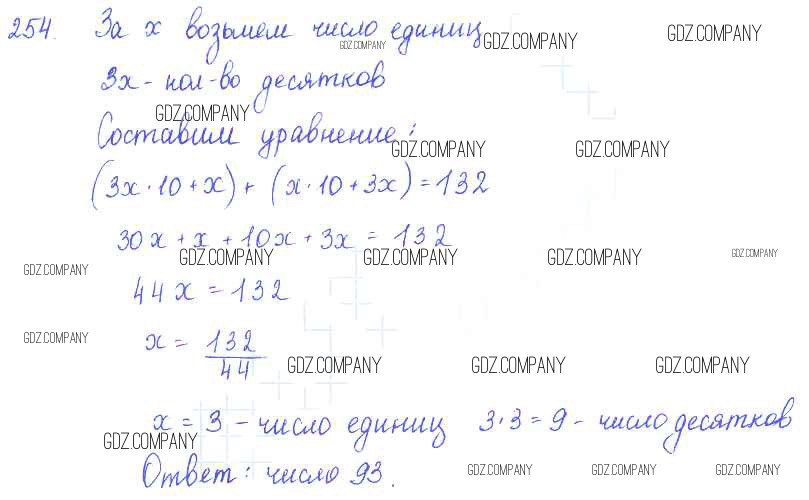 254. За x возьмем число единиц
GDZ.COMPANY GDZ.COMPANY GDZ.COMPANY
3x - кол-во десятков
GDZ.COMPANY
Составим уравнение:
GDZ.COMPANY GDZ.COMPANY
(3x·10+x)+(x·10+3x)=132
30x+x+10x+3x=132
GDZ.COMPANY GDZ.COMPANY GDZ.COMPANY GDZ.COMPANY
GDZ.COMPANY
44x=132
GDZ.COMPANY
x= 132/44
GDZ.COMPANY GDZ.COMPANY GDZ.COMPANY
x=3 - число единиц 3·3=9 - число десятков
GDZ.COMPANY
Ответ: число 93.
GDZ.COMPANY GDZ.COMPANY GDZ.COMPANY